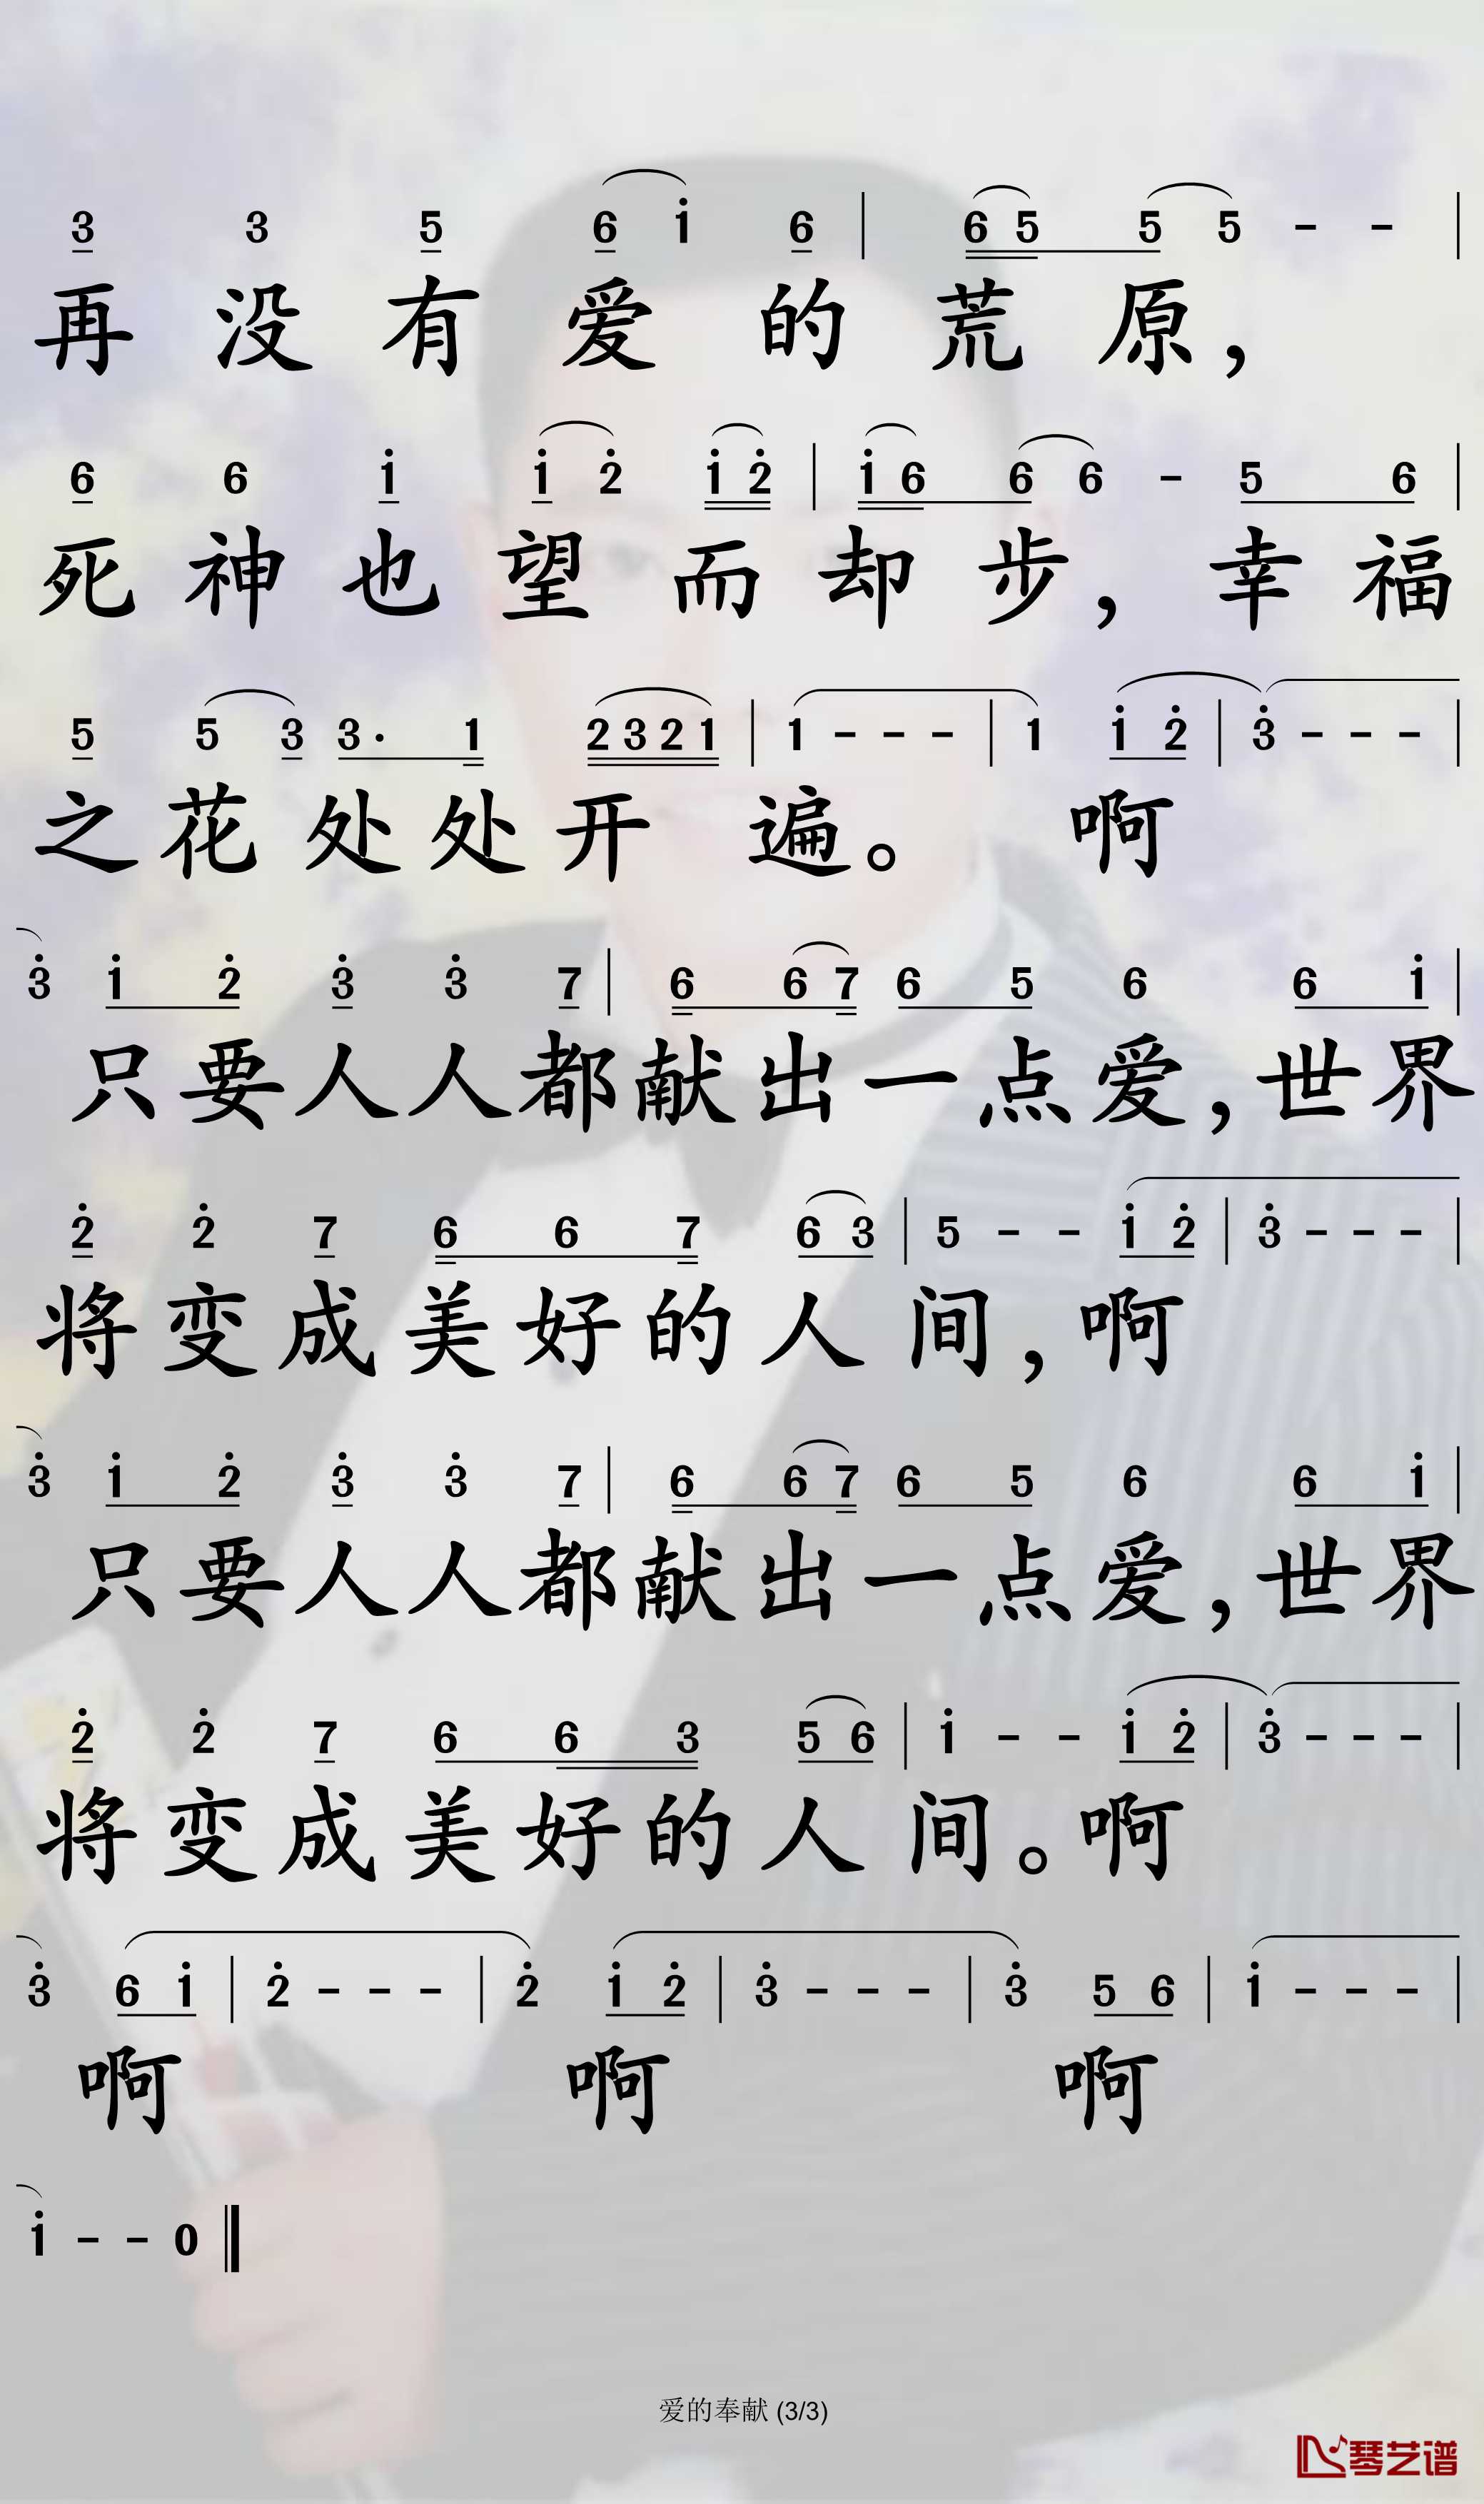 3 3 5 6 i 6 | 6 5 5 5 - - |
再没有爱的荒原，
6 6 i i 2̇ i 2̇ | i 6 6 6 - 5 6 |
死神也望而却步，幸福
5 5 3 3· 1 2 3 2 1 | 1 - - - | 1 i 2̇ | 3̇ - - - |
之花处处开遍。啊
3̇ i 2̇ 3̇ 3̇ 7 | 6 6 7 6 5 6 6 i |
只要人人都献出一点爱，世界
2̇ 2̇ 7 6 6 7 6 3 | 5 - - i 2̇ | 3̇ - - - |
将变成美好的人间，啊
3̇ i 2̇ 3̇ 3̇ 7 | 6 6 7 6 5 6 6 i |
只要人人都献出一点爱，世界
2̇ 2̇ 7 6 6 3 5 6 | i - - i 2̇ | 3̇ - - - |
将变成美好的人间。啊
3̇ 6 i | 2̇ - - - | 2̇ i 2̇ | 3̇ - - - | 3̇ 5 6 | i - - - |
啊 啊 啊
i - - 0 ‖
爱的奉献 (3/3)
琴艺谱